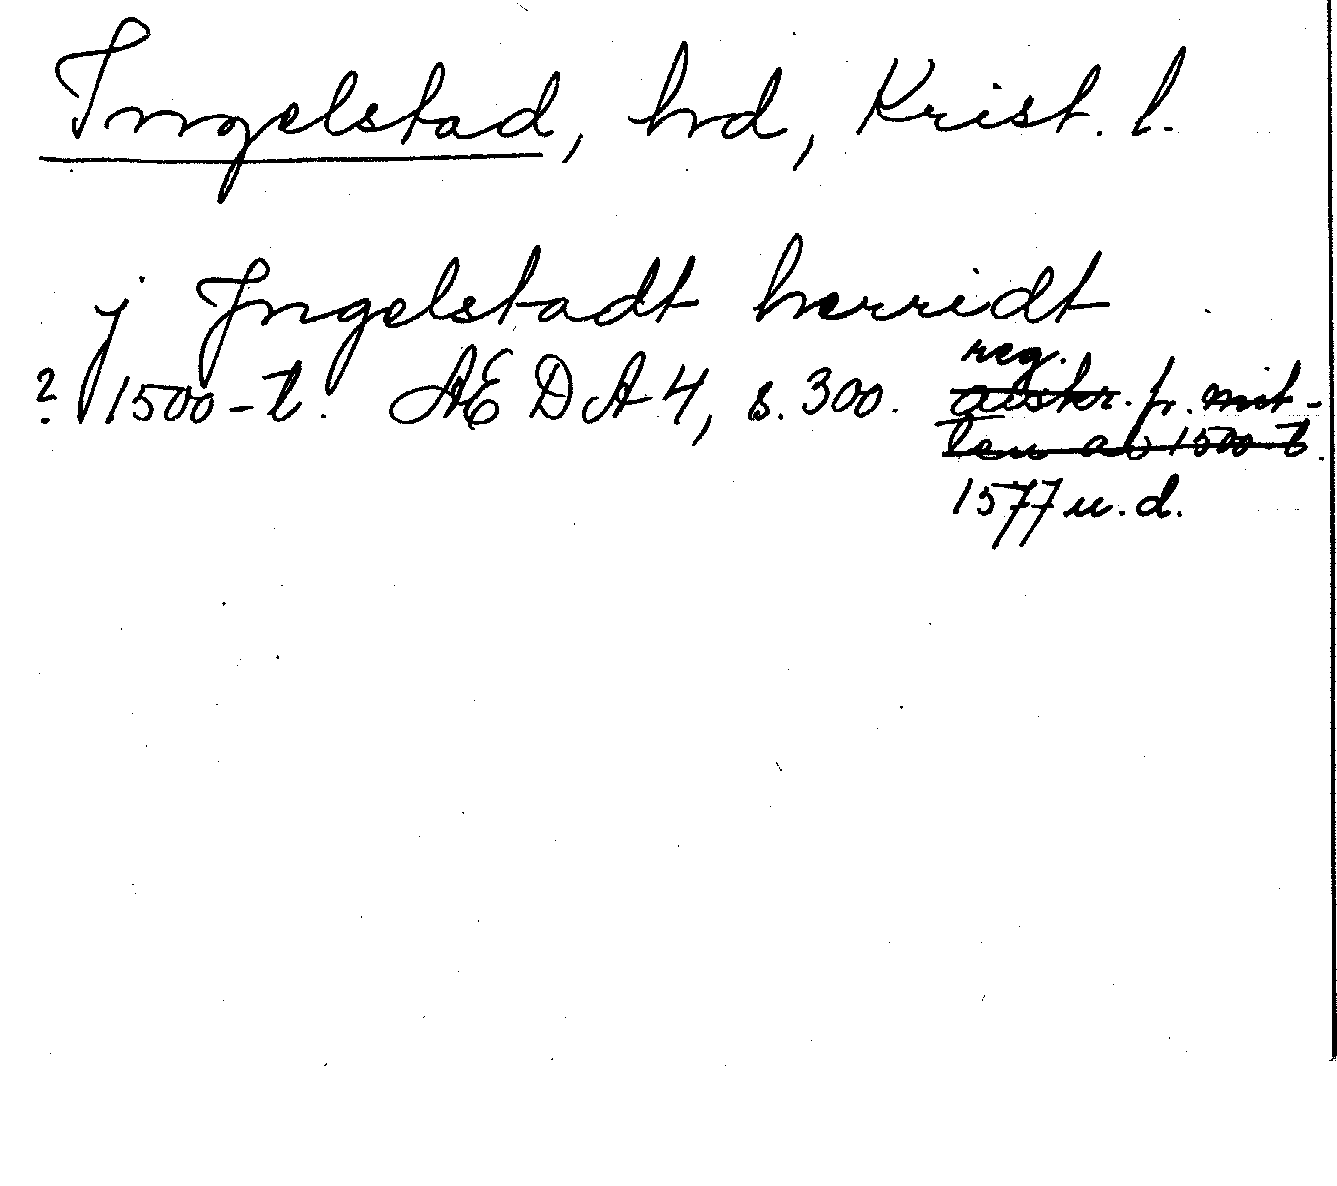 Ingelstad, hd, Krist. l.
j Ingelstadt herridt
? 1500-t. AEDA 4, s. 300. reg.
avskr. fr. mit-
ten av 1500-t.
1577 u. d.